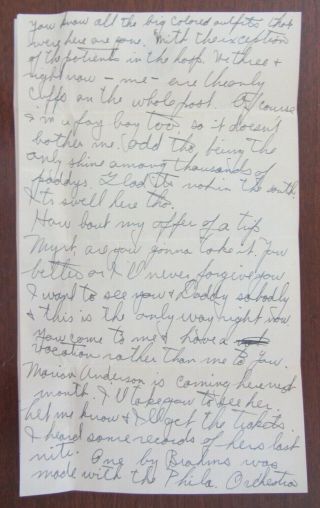 You know all the big colored outfits that
were here are gone. With the exception
of the patients in the hosp. We three &
right now - me - are the only
cuffs on the whole post. Of course
I'm a fay boy too. so it doesn't
bother me. odd tho, being the
only shine among thousands of
paddys. Glad its not in the south.
Its swell here tho.
How bout my offer of a trip
Myrt, are you gonna take it. You
better or I'll never forgive you
I want to see you & Daddy so badly
& this is the only way right now
You come to me & have a
vacation rather than me to you.
Marian Anderson is coming here next
month. I'll take you to see her.
Let me know & I'll get the tickets.
I heard some records of hers last
nite. One by Brahms was
made with the Phila. Orchestra